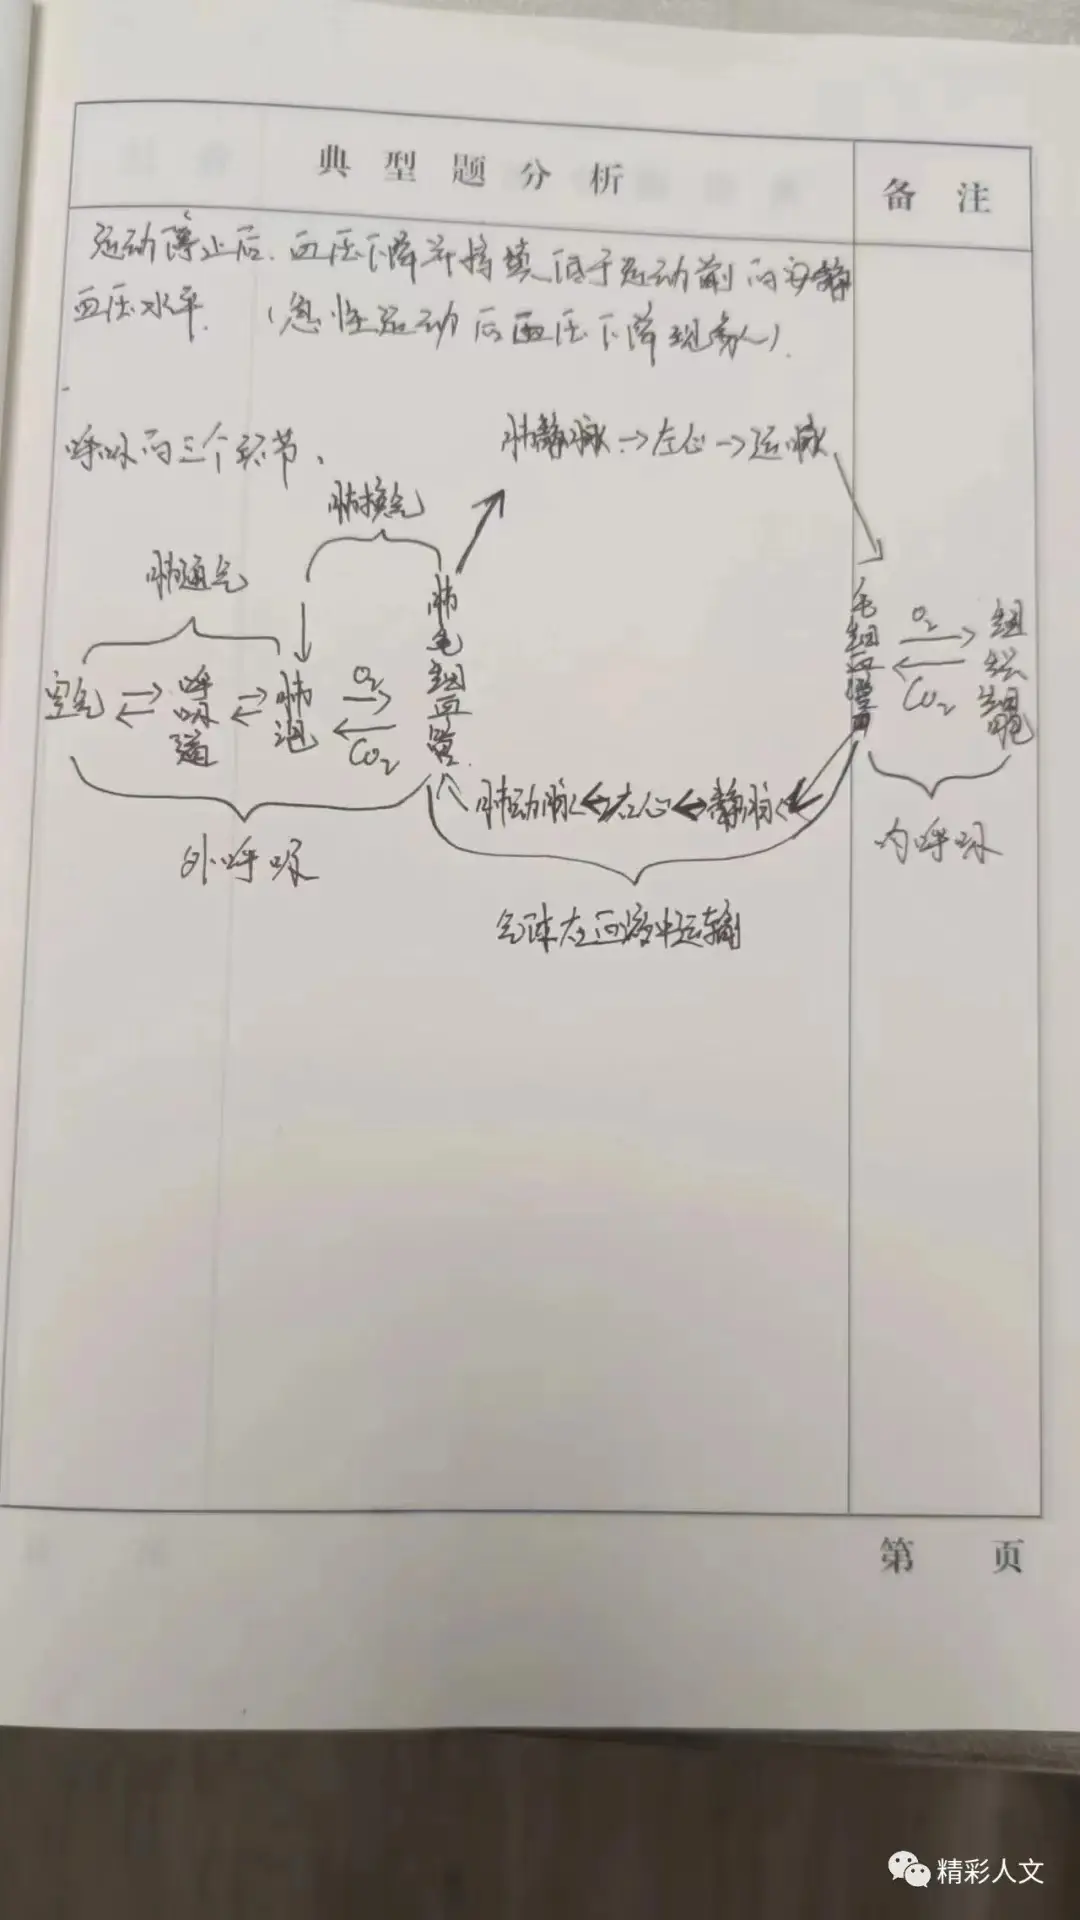 典型题分析
备注
运动停止后、血压下降并持续低于运动前的安静
血压水平. (急性运动后血压下降现象).
呼吸的三个环节、
肺静脉→左心→运脉
肺换气
肺通气
空气
呼吸道
肺泡
O₂
CO₂
肺毛细血管.
毛细血管
O₂
CO₂
组织细胞
肺动脉←左心←静脉
外呼吸
内呼吸
气体在血液中运输
第 页
精彩人文